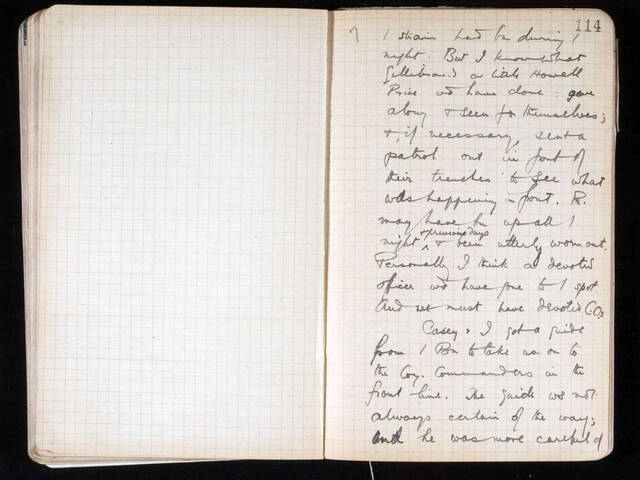 114
strain had bn during /
night. But I know what
Gellibrand or little Howell
Price wd have done: gone
along & seen for themselves;
& , if necessary, sent a
patrol out in front of
their trenches to see what
was happening in front. R.
may have bn up all /
night & previous days & been utterly worn out.
Personally I think a devoted
officer wd have gone to / spot
And we must have devoted C.O.s
Casey & I got a guide
from 1 Bn to take us on to
the Coy. Commanders in the
front line. The guide was not
always certain of the way;
and he was more careful of